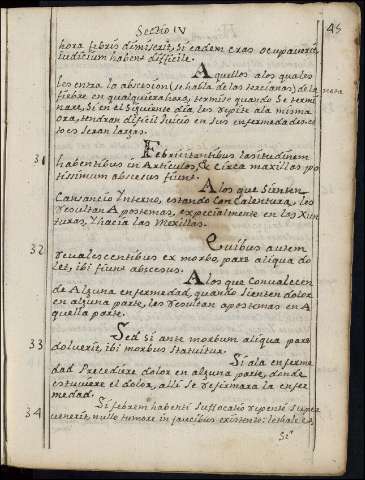 Sectio IV
45
hora febris dimiserit, si eadem cras ocupaverit,
iudicium habent difficile.
Aquellos alos quales
les entra la abscesion (se habla de las tercianas) de la
nota
fiebre en qualquiera hora, termino quando se termi
nare, Si en el Siguiente dia les repite ala misma
ora, tendran dificil Juicio en sus enfermedades,
seran largas.
31
Febricitantibus lasitudinem
habentibus in Articulos, & circa maxillas po
tissimum abscesus fiunt.
A los que Sienten
Cansancio Ynterno, estando Con Calentura, les
resultan Apostemas, especialmente en las Xun
turas, Yhacia las Mexillas.
32
Quibus autem
revalescentibus ex morbo, pars aliqua do
let, ibi fiunt abscesus.
A los que Convalecen
de Alguna enfermedad, quando Sienten dolor
en alguna parte, les resultan apostemas en A
quella parte.
33
Sed si ante morbum aliqua pars
doluerit, ibi morbus Statuitur.
Si ala enferme
dad Precediere dolor en alguna parte, donde
estuviere el dolor, alli se afirmara la enfer
medad.
34
Si febrem habenti Suffocatio repente Super
venerit, nullo tumore in faucibus existente: lethale est,
Si